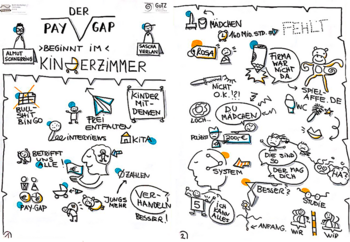 DER
PAY GAP
BEGINNT IM
KINDERZIMMER
ALMUT
SCHNERRING
SASCHA
VERLAN
BULL-
SHIT
BINGO
FREI
ENTFALTEN
KINDER
MIT-
DENKEN
interviews
KITA
BETRIFFT
UNS
ALLE
ZAHLEN
PAY-GAP
JUNGS
MEHR
VER-
HANDELN
BESSER!
1
MÄDCHEN
140 Mio. STD.
FEHLT
ROSA
FIRMA
WAR
NICHT
DA
NICHT
O.K.!?!
SPIEL
AFFE.DE
LOCH...
DU
MÄDCHEN
WC
2000€
SYSTEM
DIE SIND
SO
DER TAG DICH
HA?
BESSER?
STUDIE
5
ICH
KANN
ALLES
ANFANG.
WIR
WIR
2